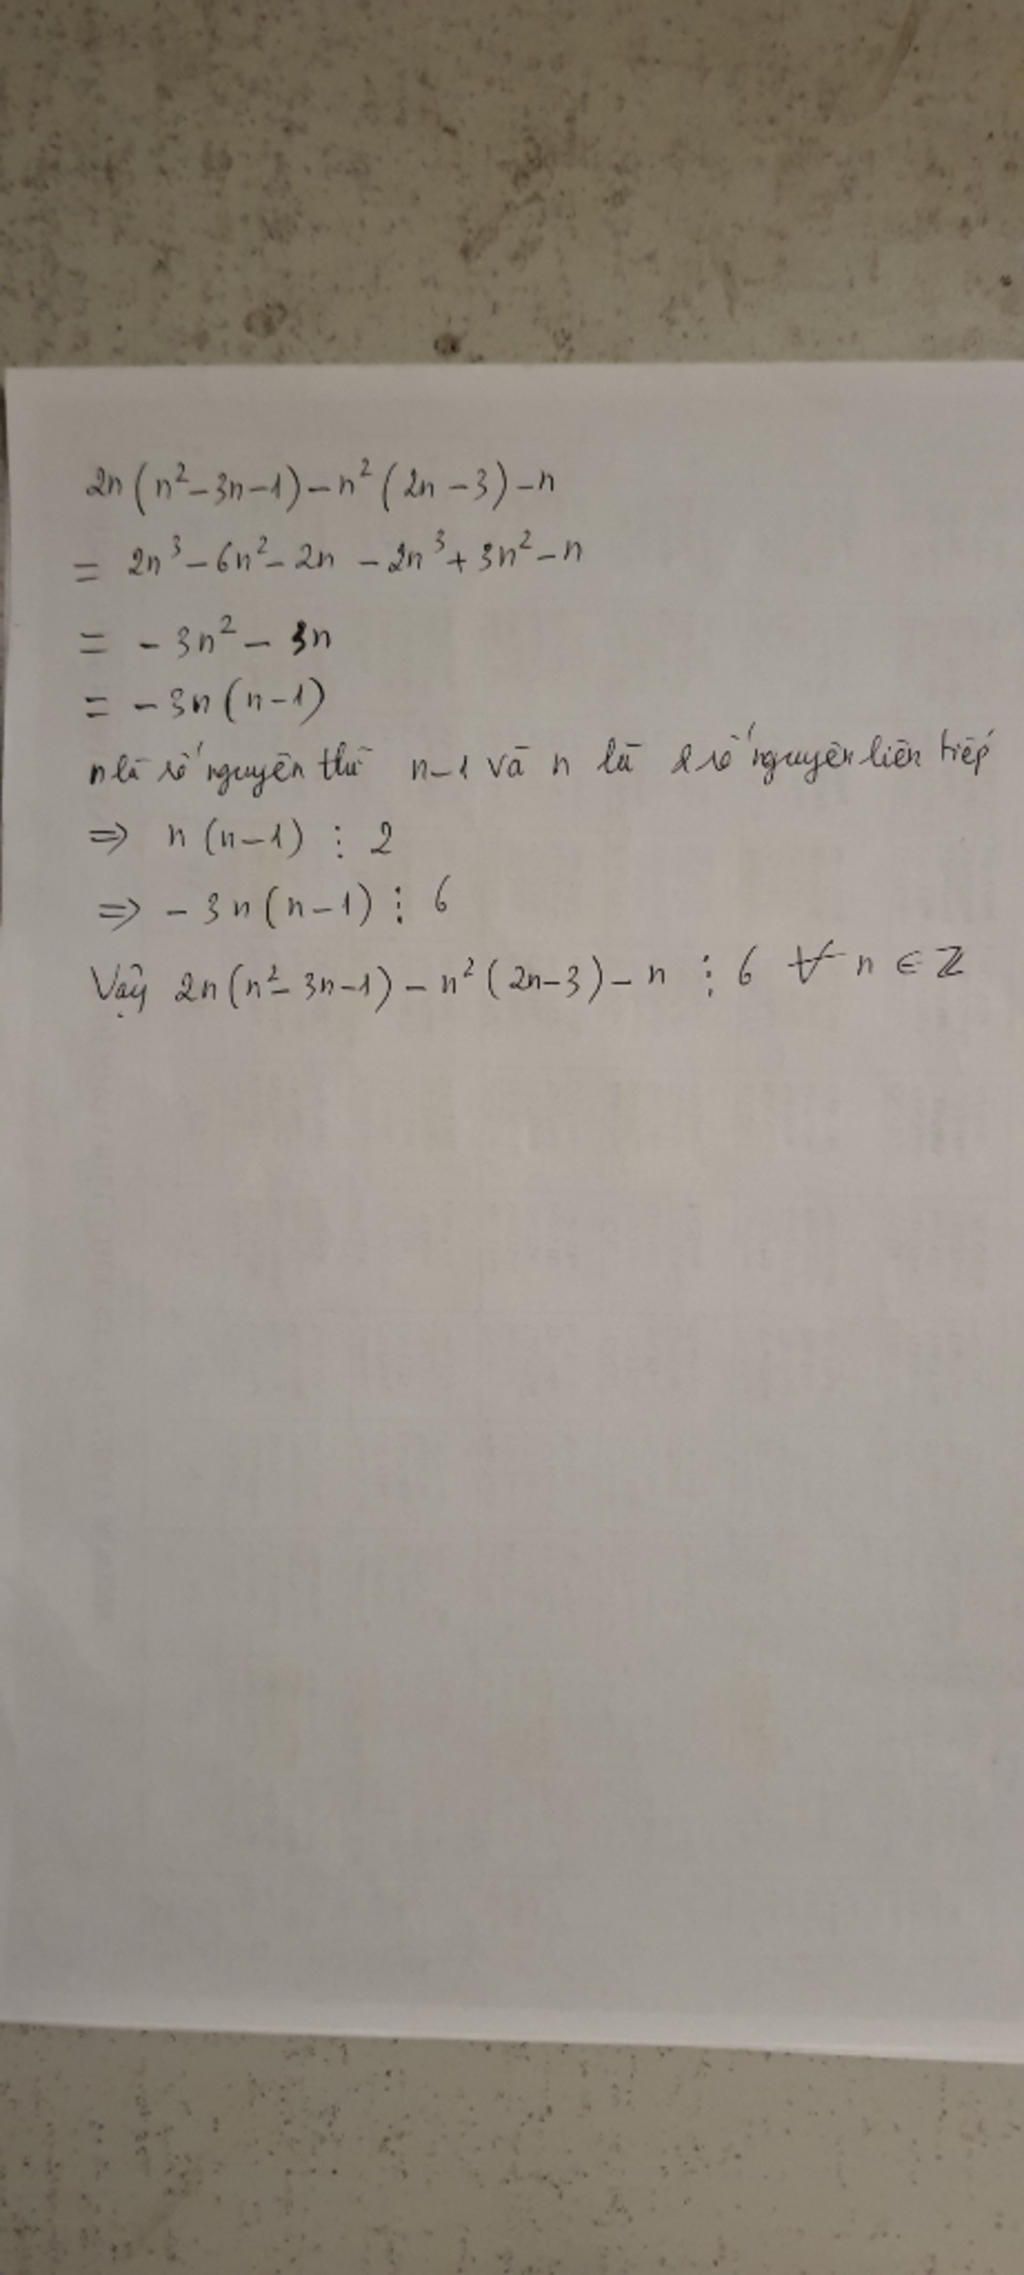 2n(n²-3n-1)-n²(2n-3)-n
= 2n³-6n²-2n-2n³+3n²-n
= -3n²-3n
= -3n(n-1)
n là số nguyên thì n-1 và n là 2 số nguyên liên tiếp
⇒ n(n-1) ⋮ 2
⇒ -3n(n-1) ⋮ 6
Vậy 2n(n²-3n-1)-n²(2n-3)-n ⋮ 6 ∀ n ∈ ℤ